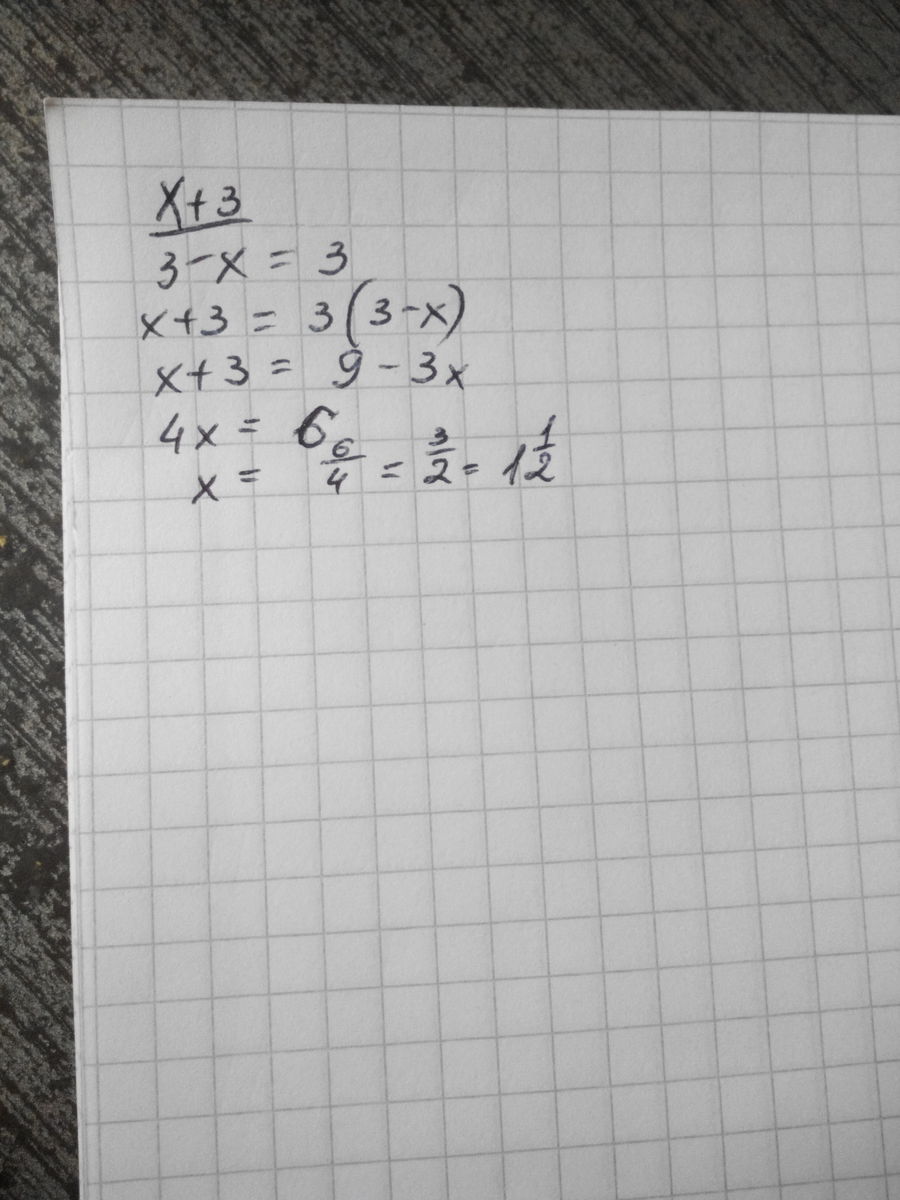 x+3
3-x = 3
x+3 = 3(3-x)
x+3 = 9-3x
4x = 6
x = 6/4 = 3/2 = 1 1/2